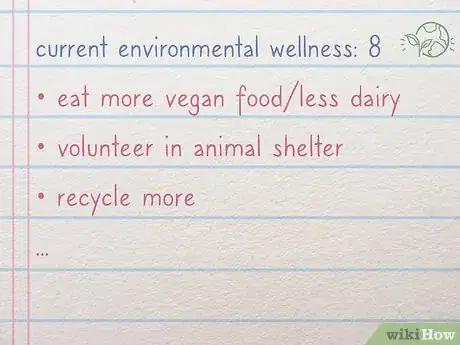 current environmental wellness: 8
• eat more vegan food/less dairy
• volunteer in animal shelter
• recycle more
...
wikiHow